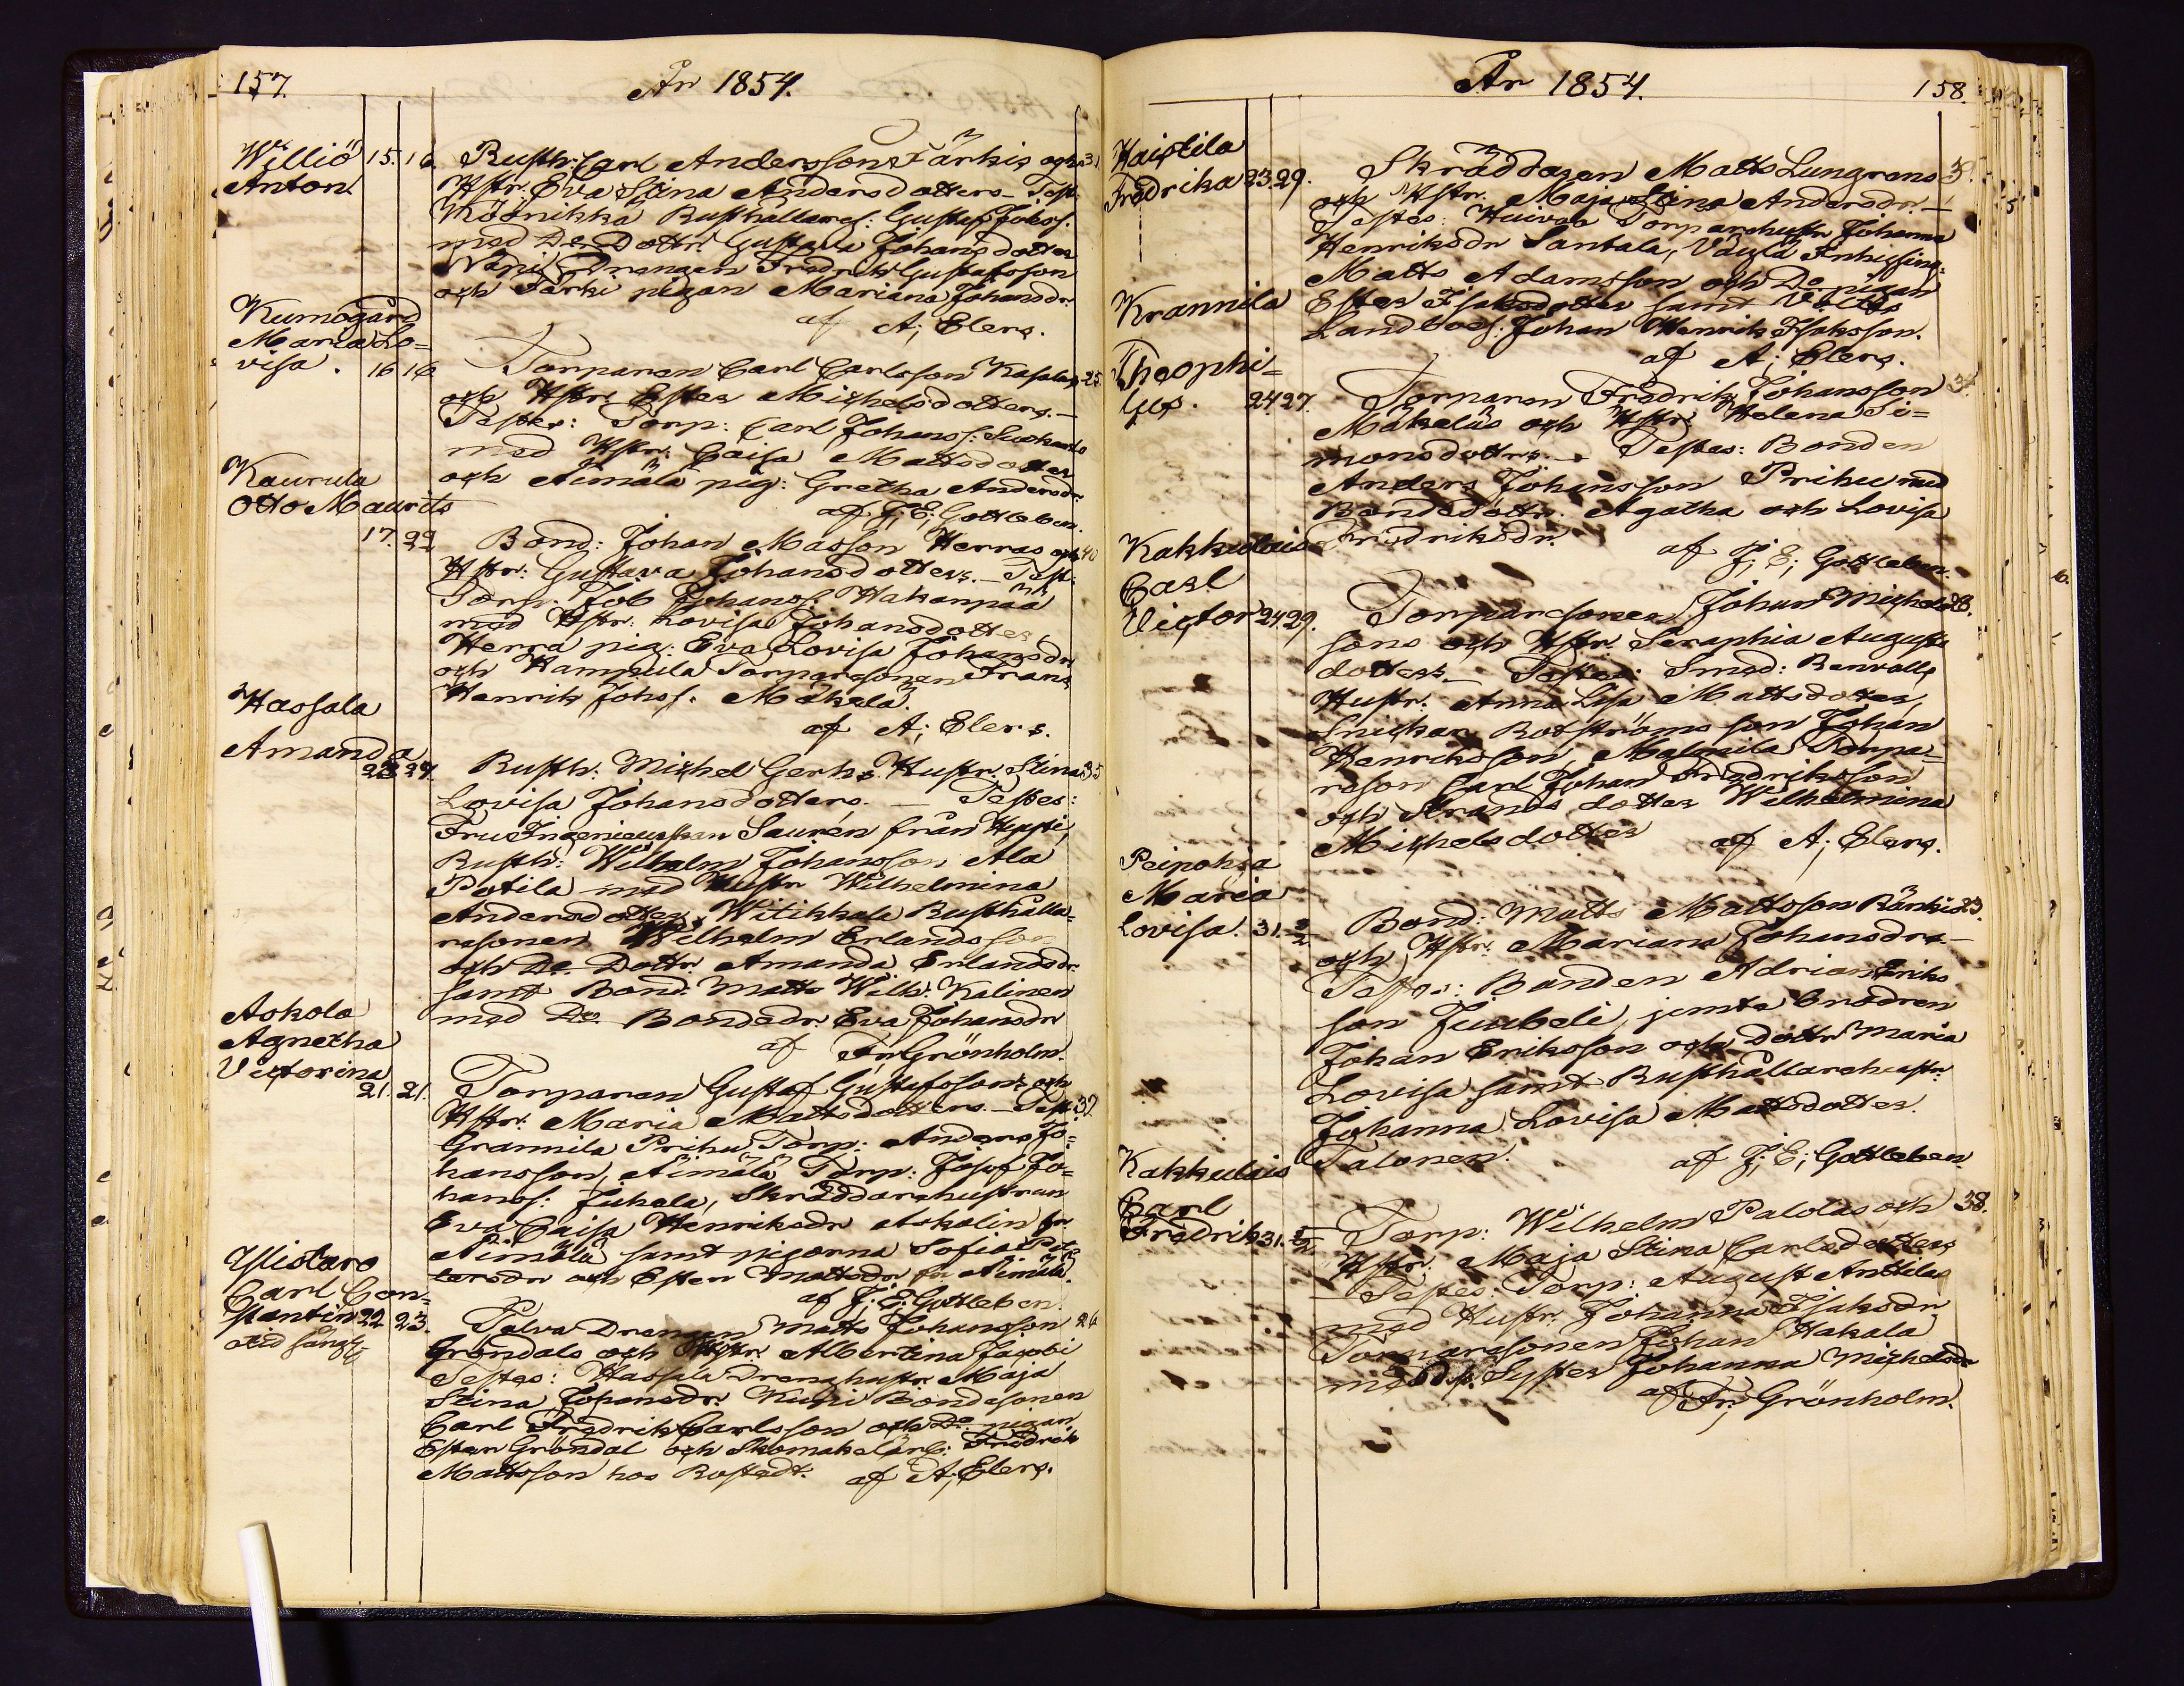 157.
År 1854.
Williö 15. 16. Rusth: Carl Anderssons Färkis och 31.
Anton. Hstr. Eva Stina Andersdotters – Test.
Köönikkä Rusthållares: Gustaf Jobss.
med Do Dottr Gustava Johansdotter
Drengen Fredrik Gustafsson
och Färki pigan Mariana Johansdr.
af A; Elers.
Kumogård
Maria Lo=
visa. 16 16 Torparen Carl Carlsson Kasalas 25.
och Hstr. Ester Michelsdotters. –
Testes: Torp: Carl Johanss:
med Hstr: Caisa Mattsdotter
och Aimälä pig: Gretha Andersdr.
af J; E; Gottleben.
Kaurula
Otto Maurits
17. 22 Bond: Johan Masson Herras och 40
Hstr: Gustava Johansdotters. – Test:
Torp: Job Johanss Hakanpää
med Hstr: Lovisa Johansdotter,
Herra pig: Eva Lovisa Johansdr
och Hampula Torparesonen Frans
Henrik Johss. Mäkelä.
af A; Elers.
Hassala
Amanda
23 24. Rusth: Michel Gerks. Hustr. Stina 35
Lovisa Johansdotters. – Testes:
Fru Ingenieurskan Saurén från Heppi,
Rusth: Wilhelm Johansson Ala
Potila med Hustr Wilhelmina
Andersdotter, Witikkala Rusthålla=
resonen Wilhelm Erlandsson
och Do Dottr. Amanda Erlandsdr.
samt Bond: Matts Wilh: Kalinen
med Do Bondedr. Eva Johansdr
af Fr; Grönholm.
Askola
Agnetha
Victorina
21. 21. Torparen Gustaf Gustafssons och
Hstr: Maria Mattsdotters. – Test: 32
Grannila Prihu Torp: Anders Jo=
hansson, Aimälä Torp: Josef Jo=
hanss: Juhala, Skräddarehustrun
Eva Caisa Henriksdr Askolin fr.
Aimälä samt pigorna Sofia
och Ester Mattsdr fr. Aimälä.
af J; E; Gottleben.
Ylistaro
Carl Con=
stantin 22 23. Palva Drengen Matts Johansson 26
Gröndals och Hstr: Albertina Jacobi
Testes: Hassala Drenghustr Maja
Stina Johansdr. Kuppi Bondesonen
Carl Fredrik Carlsson och Do pigan
Ester Gröndal och Skomakelärl: Fredrik
Mattsson hos Bostedt. af A; Elers.
År 1854.
158.
Haistila
Fredrika 23. 29. Skräddaren Matts Lungrens
och Hstr. Maja Stina Andersdr. –
Testes: Torparehustr Johanna
Henriksdr Santala, Inhysing:
Matts Adamsson och Do pigan
Ester Isaksdotter samt
Landboes: Johan Henrik Isaksson.
af A; Elers.
Krannila
Theophi=
lus. 24 27. Torparen Fredrik Johansson 34.
Mäkeläs och Hstr. Helena Si=
monsdotters. – Testes: Bonden
Anders Johansson Prihu med
Bondedottr. Agatha och Lovisa
Fredriksdr. af J; E; Gottleben.
Kakkulais
Carl
Victor 24. 29. Torparesonen Johan Michels
sons och Hstr. Seraphia Augusts
dotters – Testes: Smed: Renvalls
Hustr. Anna Lisa Mattsdotter,
Snickar Botströms son Johan
Henriksson, Torpa=
reson Carl Johan Fredriksson
och Strands dotter Wilhelmina
Michelsdotter af A; Elers.
Peipohja
Maria
Lovisa. 31. 2/2 Bond: Matts Mattsson Ränkis 23.
och Hstr. Mariana Johansdrs –
Testes: Bonden Adrian Eriks
son Juubeli, jemte brodren
Johan Eriksson och dottr Maria
Lovisa samt Rusthållarehustr.
Johanna Lovisa Mattsdotter.
Talonen. af J; E; Gottleben.
Kakkulais
Carl
Fredrik 31. 2/2 Torp: Wilhelm Palolas och 38.
Hstr: Maja Stina Carlsdotters
Testes: Torp: August Anttilas
med Hustr. Johanna Isaksdr
Torparesonen Johan Hakala
med s. Syster Johanna Michelsdr
af Fr; Grönholm.